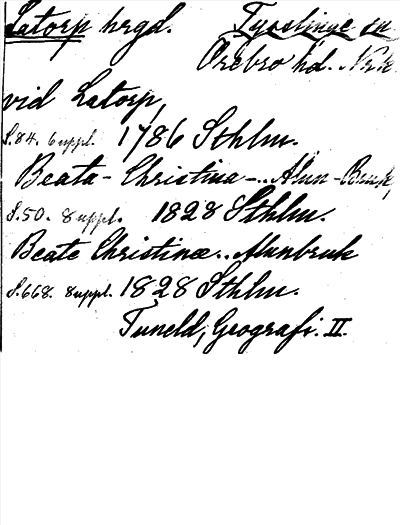 Latorp hrgd. Tysslinge sn
Örebro hd. Nrk
vid Latorp,
S.84. 6 uppl. 1786 Sthlm.
Beata-Christina-.. Alun-Bruk,
S.50. 8 uppl. 1828 Sthlm.
Beate Christinæ.. Alunbruk
S.668. 8 uppl. 1828 Sthlm.
Tuneld, Geografi. II.